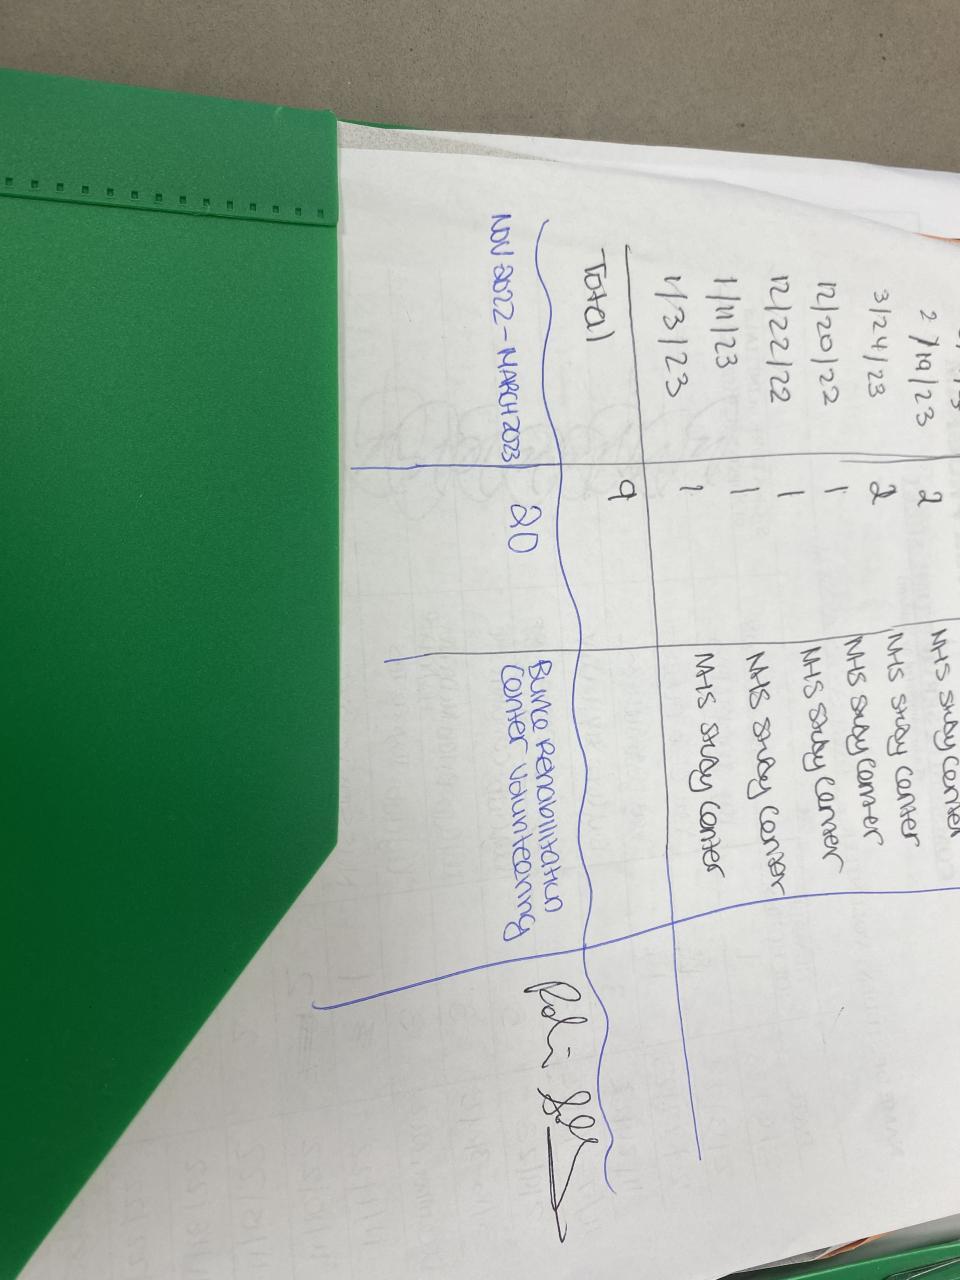 NHS Study Center
2/19/23 2 NHS Study Center
3/24/23 2 NHS Study Center
12/20/22 1 NHS Study Center
12/22/22 1 NHS Study Center
1/11/23 1 NHS Study Center
1/3/23 1
Total 9
NOV 2022 - MARCH 2023 20 Burke Rehabilitation
Center Volunteering